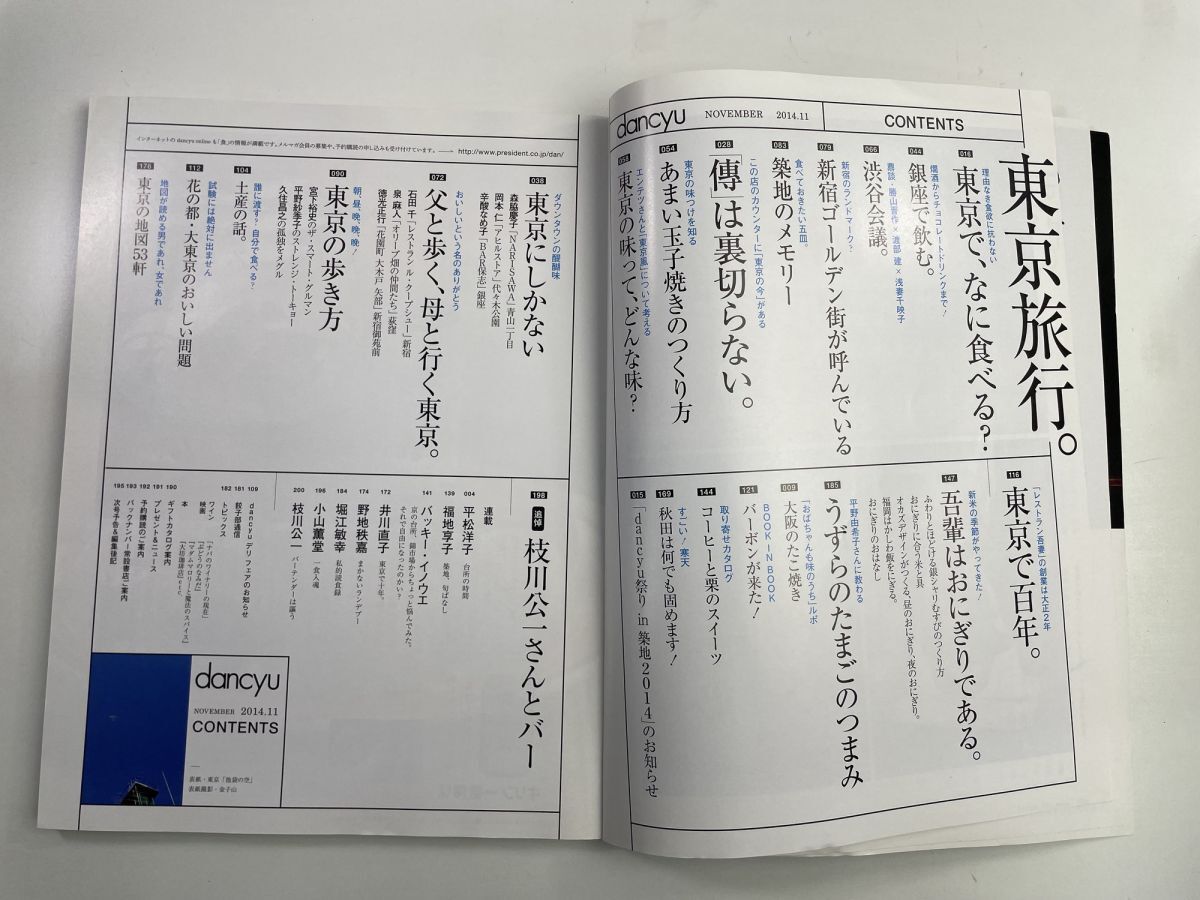 dancyu NOVEMBER 2014.11
CONTENTS
東京旅行。
理由なき食欲に抗わない
016
東京で、なに食べる?
燗酒からチョコレートドリンクまで!
044
銀座で飲む。
鼎談・勝山晋作×渡部 建×浅妻千映子
066
渋谷会議。
新宿のランドマーク?
079
新宿ゴールデン街が呼んでいる
食べておきたい五皿。
083
築地のメモリー
この店のカウンターに「東京の今」がある
028
「傳」は裏切らない。
東京の味つけを知る
054
あまい玉子焼きのつくり方
エンテツさんと「東京風」について考える
058
東京の味って、どんな味?
「レストラン吾妻」の創業は大正2年
116
東京で百年。
新米の季節がやってきた!
147
吾輩はおにぎりである。
ふわりとほどける銀シャリむすびのつくり方
おにぎりに合う米と具
オカズデザインがつくる、昼のおにぎり、夜のおにぎり。
福岡はかしわ飯をにぎる。
おにぎりのおはなし
平野由希子さんに教わる
185
うずらのたまごのつまみ
「おばちゃんも味のうち」ルポ
009
大阪のたこ焼き
BOOK IN BOOK
121
バーボンが来た!
取り寄せカタログ
144
コーヒーと栗のスイーツ
すごい!寒天
169
秋田は何でも固めます!
015
「dancyu祭り in 築地2014」のお知らせ
インターネットの dancyu online も「食」の情報が満載です。メルマガ会員の募集や、予約購読の申し込みも受け付けています。→ http://www.president.co.jp/dan/
ダウンタウンの醍醐味
038
東京にしかない
森脇慶子「NARISAWA」青山一丁目
岡本 仁「アヒルストア」代々木公園
辛酸なめ子「BAR保志」銀座
おいしいという名のありがとう
072
父と歩く、母と行く東京。
石田 千「レストラン・ル・クープシュー」新宿
泉 麻人「オリーブ畑の仲間たち」荻窪
徳光正行「花園町 大木戸 矢部」新宿御苑前
朝、昼、晩、晩!
090
東京の歩き方
宮下裕史のザ・スマート・グルマン
平野紗季子のストレンジ・トーキョー
久住昌之の孤独をメグル
誰に渡す?自分で食べる?
104
土産の話。
試験には絶対に出ません
112
花の都・大東京のおいしい問題
地図が読める男であれ、女であれ
176
東京の地図53軒
198
追悼
枝川公一さんとバー
連載
004
平松洋子 台所の時間
139
福地享子 築地、旬ばなし
141
バッキー・イノウエ
京の台所、錦市場からちょっと悩んでみた。
それで自由になったのかい?
172
井川直子 東京で十年。
174
野地秩嘉 まかないランデブー
184
堀江敏幸 私的読食録
196
小山薫堂 一食入魂
200
枝川公一 バーテンダーは謳う
109
dancyu デリ フェアのお知らせ
181
餃子部通信
182
トピックス
ワイン 「ナパのワイナリーの現在」
映画 「ぶどうのなみだ」
「マダムマロリーと魔法のスパイス」
本 「大坊珈琲店」etc.
190
ギフトカタログ案内
191
プレゼント&ニュース
192
予約購読のご案内
193
バックナンバー常設書店ご案内
195
次号予告&編集後記
dancyu
NOVEMBER 2014.11
CONTENTS
表紙・東京「池袋の空」
表紙撮影・金子山